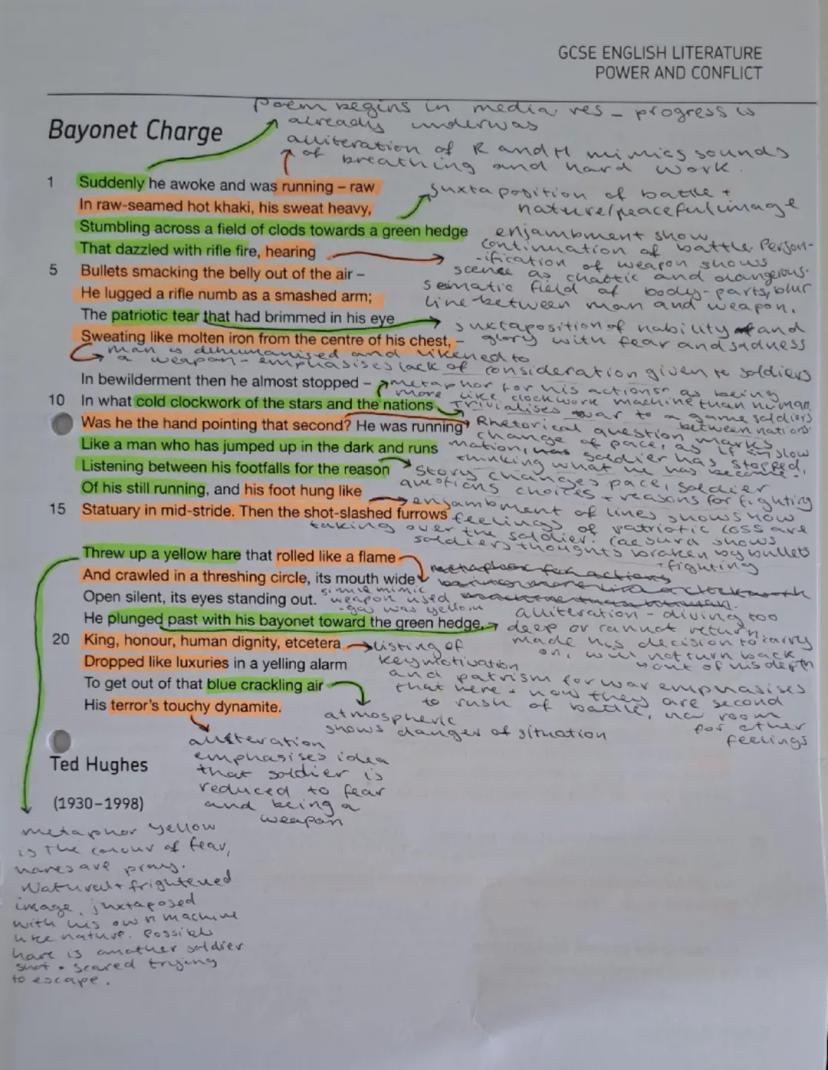 GCSE ENGLISH LITERATURE
POWER AND CONFLICT
Poem begins in media res - progress is
already underwas
Bayonet Charge
alliteration of R and H mimics sounds
of breathing and hard work.
1 Suddenly he awoke and was running – raw
In raw-seamed hot khaki, his sweat heavy,
juxtaposition of battle +
nature/peaceful image
Stumbling across a field of clods towards a green hedge
That dazzled with rifle fire, hearing
enjambment show
continuation of battle. Person-
-ification of weapon shows
scene as chaotic and dangerous.
5 Bullets smacking the belly out of the air –
He lugged a rifle numb as a smashed arm;
sematic field of body-parts, blur
line between man and weapon.
The patriotic tear that had brimmed in his eye
juxtaposition of nobility and
glory with fear and sadness
Sweating like molten iron from the centre of his chest, –
man is dehumanised and likened to
a weapon - emphasises lack of consideration given to soldiers
In bewilderment then he almost stopped –
metaphor for his actions as being
more like clockwork machine than human
10 In what cold clockwork of the stars and the nations
Trivialises war to a game soldiers
between nations
Was he the hand pointing that second? He was running
Rhetorical question marks
change of pace, as if in slow
motion, has soldier has stopped,
thinking what he has become.
Like a man who has jumped up in the dark and runs
Listening between his footfalls for the reason
Story changes pace, soldier
questions choices + reasons for fighting
Of his still running, and his foot hung like
15 Statuary in mid-stride. Then the shot-slashed furrows
enjambment of lines shows how
feelings of patriotic loss are
taking over the soldier. Caesura shows
soldiers thoughts broken by bullets
+ fighting
Threw up a yellow hare that rolled like a flame
And crawled in a threshing circle, its mouth wide
metaphor for actions
Open silent, its eyes standing out.
simile mimic
weapon used
- gas was yellow
He plunged past with his bayonet toward the green hedge,
alliteration - diving too
deep or cannot return.
made his decision to carry
on, will not turn back
+ out of his depth
20 King, honour, human dignity, etcetera
listing of
key motivation
and patrism for war emphasises
that here + now they are second
to rush of battle, no room
for other
feelings
Dropped like luxuries in a yelling alarm
To get out of that blue crackling air
atmospheric
shows danger of situation
His terror's touchy dynamite.
alliteration
emphasises idea
that soldier is
reduced to fear
and being a
weapon
Ted Hughes
(1930–1998)
metaphor yellow
is the colour of fear,
hares are pray.
Natural + frightened
image, juxtaposed
with his own machine
like nature. Possible
hare is another soldier
shot + scared trying
to escape.